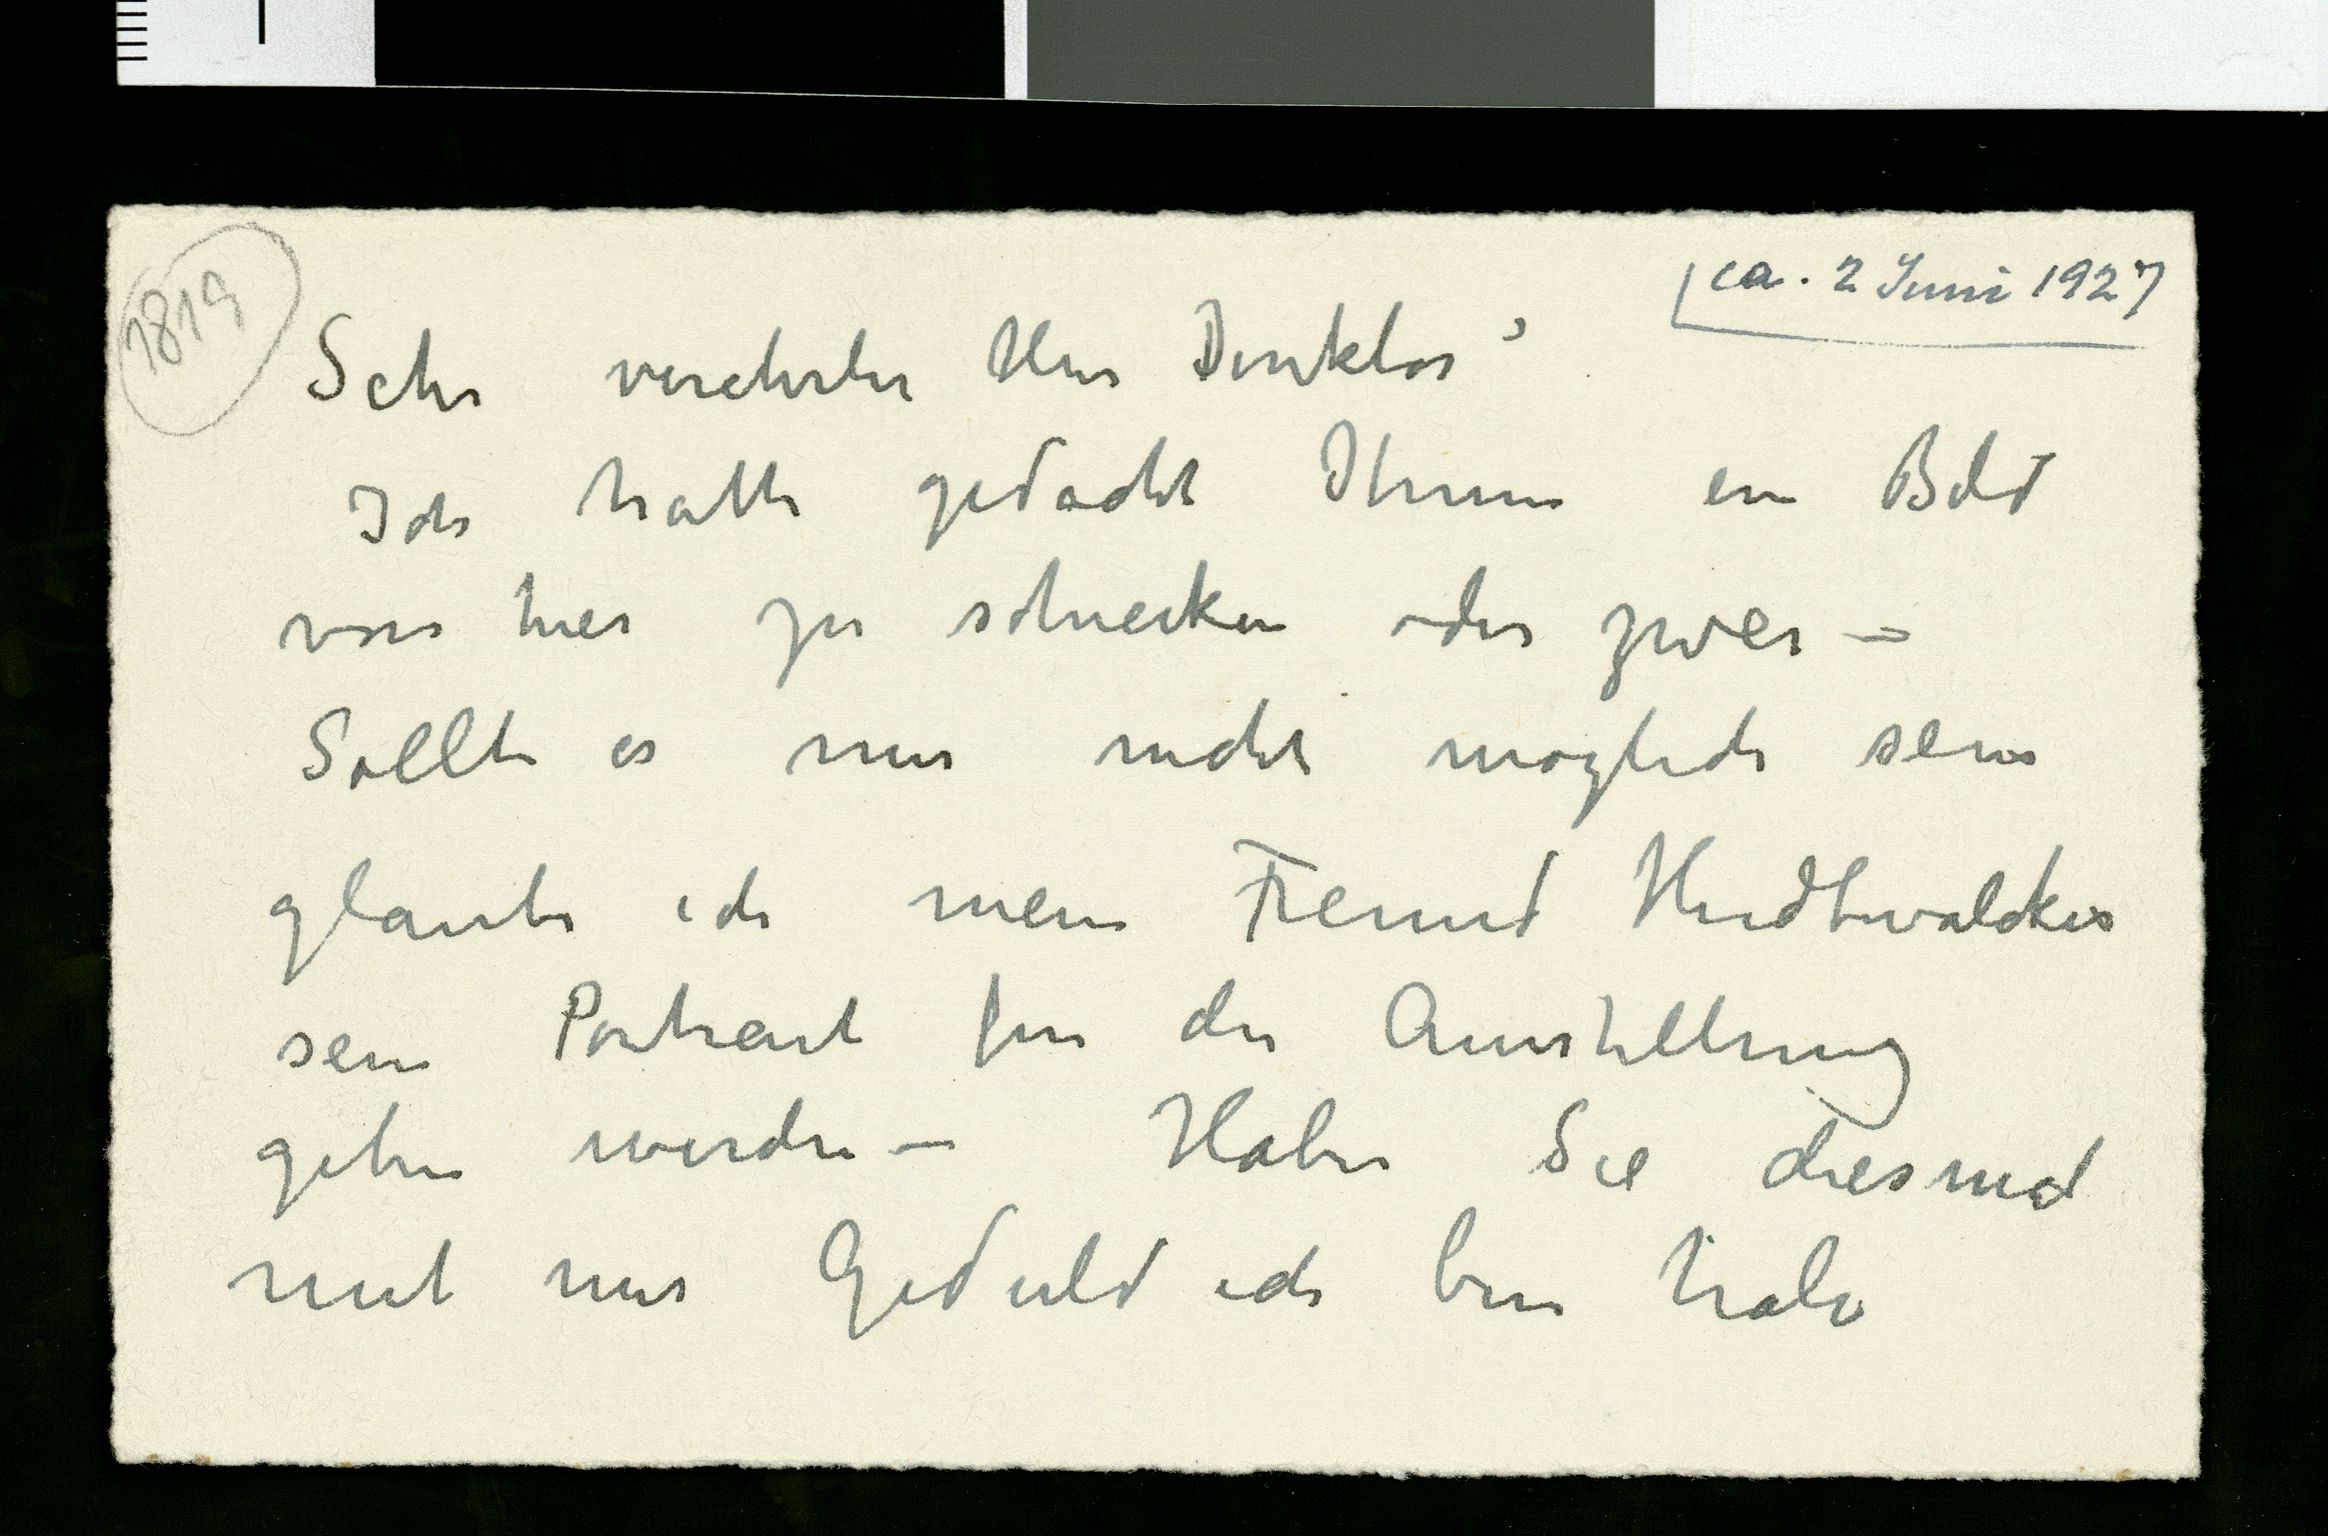 1819
ca. 2 Juni 1927
Sehr verehrter Herr Direktor'
Ich hatte gedacht Ihnen ein Bild
von hier zu schicken oder zwei –
Sollte es mir nicht möglich sein
glaube ich mein Freund Hudtwalcker
sein Portrait für die Ausstellung
geben würde – Haben Sie diesmal
mit mir Geduld ich bin halb